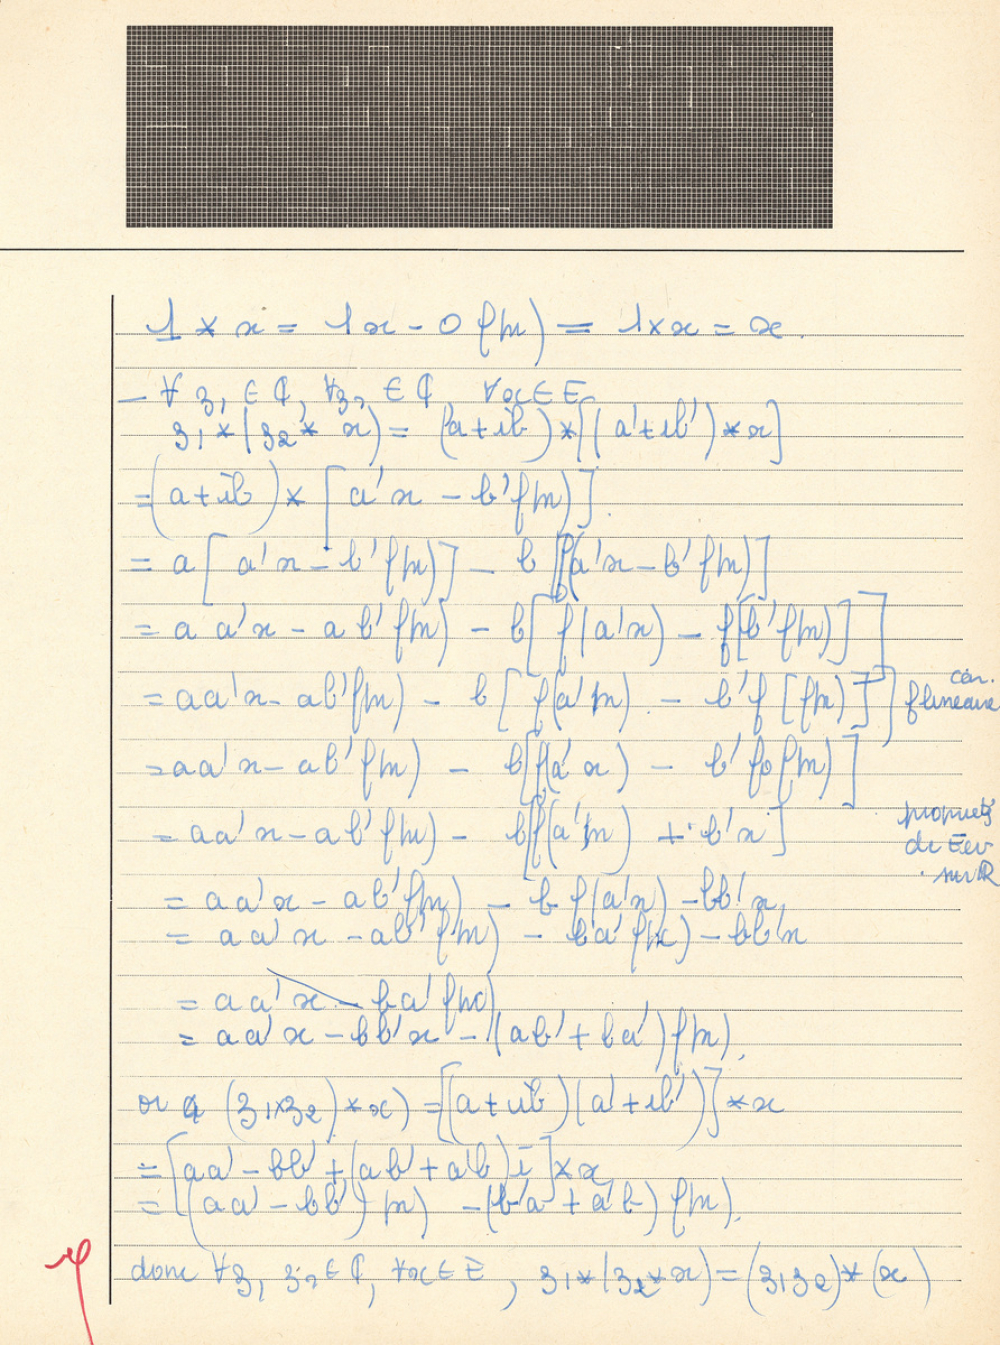 1 * x = 1x - 0 f(x) = 1 × x = x.
- ∀ z₁ ∈ ℂ, ∀z₂ ∈ ℂ, ∀x ∈ E
z₁ * (z₂ * x) = (a + ib) * [(a' + ib') * x]
= (a + ib) * [a'x - b'f(x)]
= a [a'x - b'f(x)] - b [f(a'x - b'f(x)]
= a a'x - a b'f(x) - b[f(a'x) - f[b'f(x)]]
= aa'x - ab'f(x) - b [f(a'x) - b'f[f(x)]] car f linéaire
= aa'x - ab'f(x) - b[f(a'x) - b'fof(x)]
= aa'x - ab'f(x) - b[f(a'x) + b'x] propriété de E ev sur ℝ
= aa'x - ab'f(x) - b f(a'x) - bb'x
= aa'x - ab'f(x) - ba'f(x) - bb'x
= aa'x - ba'f(x)
= aa'x - bb'x - (ab' + ba')f(x),
or (z₁×z₂) * x) = [(a + ib)(a' + ib')] * x
= [aa' - bb' + (ab' + a'b)i] * x
= (aa' - bb')(x) - (b'a + a'b) f(x).
donc ∀z₁, z₂ ∈ ℂ, ∀x ∈ E, z₁ * (z₂ * x) = (z₁z₂) * (x)